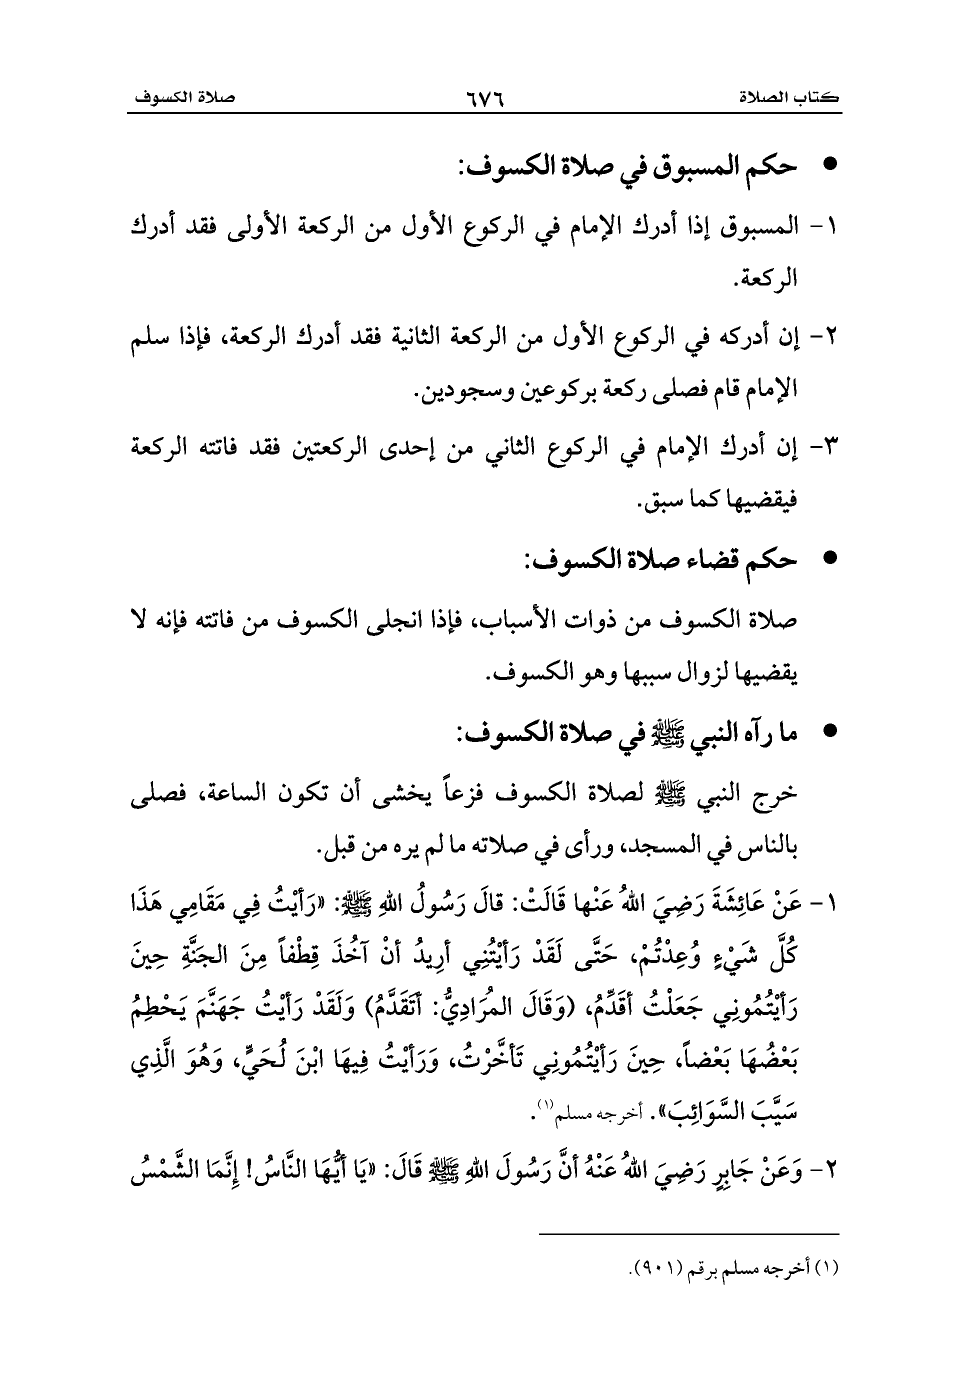 كتاب الصلاة ٦٧٦ صلاة الكسوف
● حكم المسبوق في صلاة الكسوف:
١- المسبوق إذا أدرك الإمام في الركوع الأول من الركعة الأولى فقد أدرك
الركعة.
٢- إن أدركه في الركوع الأول من الركعة الثانية فقد أدرك الركعة، فإذا سلم
الإمام قام فصلى ركعة بركوعين وسجودين.
٣- إن أدرك الإمام في الركوع الثاني من إحدى الركعتين فقد فاتته الركعة
فيقضيها كما سبق.
● حكم قضاء صلاة الكسوف:
صلاة الكسوف من ذوات الأسباب، فإذا انجلى الكسوف من فاتته فإنه لا
يقضيها لزوال سببها وهو الكسوف.
● ما رآه النبي ﷺ في صلاة الكسوف:
خرج النبي ﷺ لصلاة الكسوف فزعاً يخشى أن تكون الساعة، فصلى
بالناس في المسجد، ورأى في صلاته ما لم يره من قبل.
١- عَنْ عَائِشَةَ رَضِيَ اللهُ عَنْها قَالَتْ: قالَ رَسُولُ اللهِ ﷺ: «رَأَيْتُ فِي مَقَامِي هَذَا
كُلَّ شَيْءٍ وُعِدْتُمْ، حَتَّى لَقَدْ رَأَيْتُنِي أرِيدُ أنْ آخُذَ قِطْفاً مِنَ الجَنَّةِ حِينَ
رَأيْتُمُونِي جَعَلْتُ أقَدِّمُ، (وَقَالَ المُرَادِيُّ: أتَقَدَّمُ) وَلَقَدْ رَأيْتُ جَهَنَّمَ يَحْطِمُ
بَعْضُهَا بَعْضاً، حِينَ رَأيْتُمُونِي تَأخَّرْتُ، وَرَأيْتُ فِيهَا ابْنَ لُحَيٍّ، وَهُوَ الَّذِي
سَيَّبَ السَّوَائِبَ». أخرجه مسلم(١).
٢- وَعَنْ جَابِرٍ رَضِيَ اللهُ عَنْهُ أنَّ رَسُولَ اللهِ ﷺ قَالَ: «يَا أيُّهَا النَّاسُ! إنَّمَا الشَّمْسُ
(١) أخرجه مسلم برقم (٩٠١).